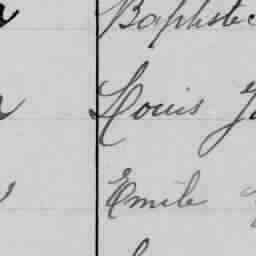 Baptiste
Louis
Emile